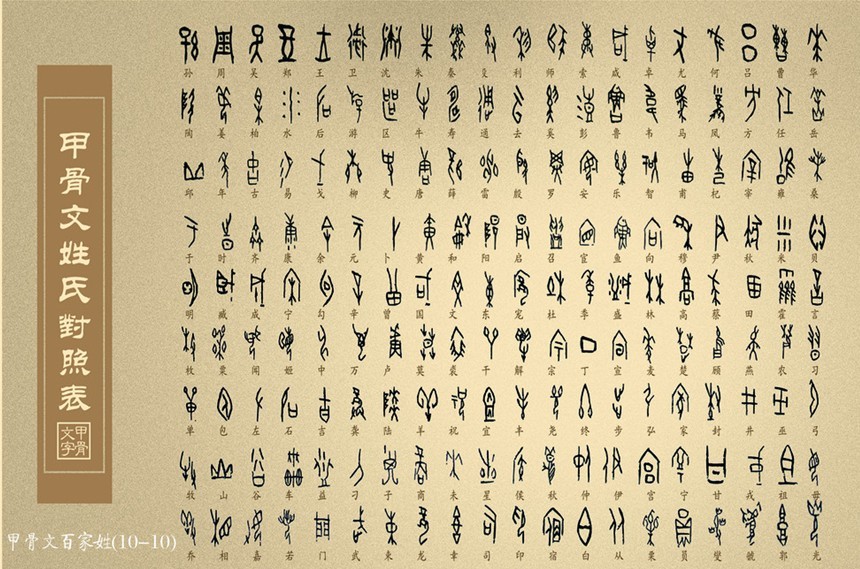 甲骨文姓氏對照表
甲骨文字
孙 周 吴 郑 王 卫 沈 朱 秦 殳 利 师 索 咸 卓 尤 何 吕 曹 华
陶 姜 柏 水 后 游 区 牛 寿 通 去 奚 彭 鲁 韦 马 凤 方 任 岳
邱 年 古 易 戈 柳 史 唐 薛 雷 殷 罗 安 乐 智 甫 杞 宰 雍 桑
于 时 齐 康 余 元 卜 黄 和 阳 启 召 宦 鱼 向 穆 尹 秋 米 贝
明 臧 成 宁 勾 辛 曾 国 文 东 宠 杜 季 盛 林 高 蔡 田 霍 言
枚 粟 闻 姬 中 万 卢 莫 裘 干 解 宗 丁 宣 麦 楚 顾 燕 农 习
单 包 左 石 吉 龚 陆 羊 祝 宜 丰 尧 终 步 弘 家 封 井 巫 弓
牧 山 谷 车 益 刁 子 商 未 星 侯 秋 仲 伊 宫 宁 甘 戎 祖 毋
乔 相 嘉 若 门 武 束 龙 幸 司 印 宿 白 从 栗 员 燮 虢 郭 光
甲骨文百家姓(10-10)